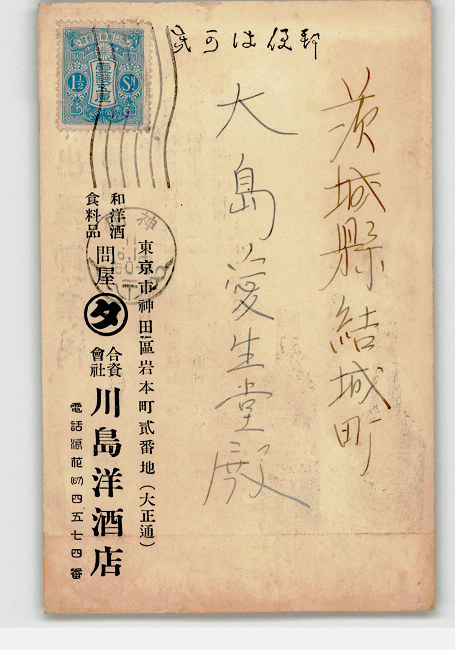 郵便はがき
壹錢五厘
1½ Sn
茨城縣結城町
大島愛生堂殿
東京市神田區岩本町貳番地(大正通)
和洋酒
食料品
問屋
タ
合資
會社
川島洋酒店
電話浪花(67)四五七四番